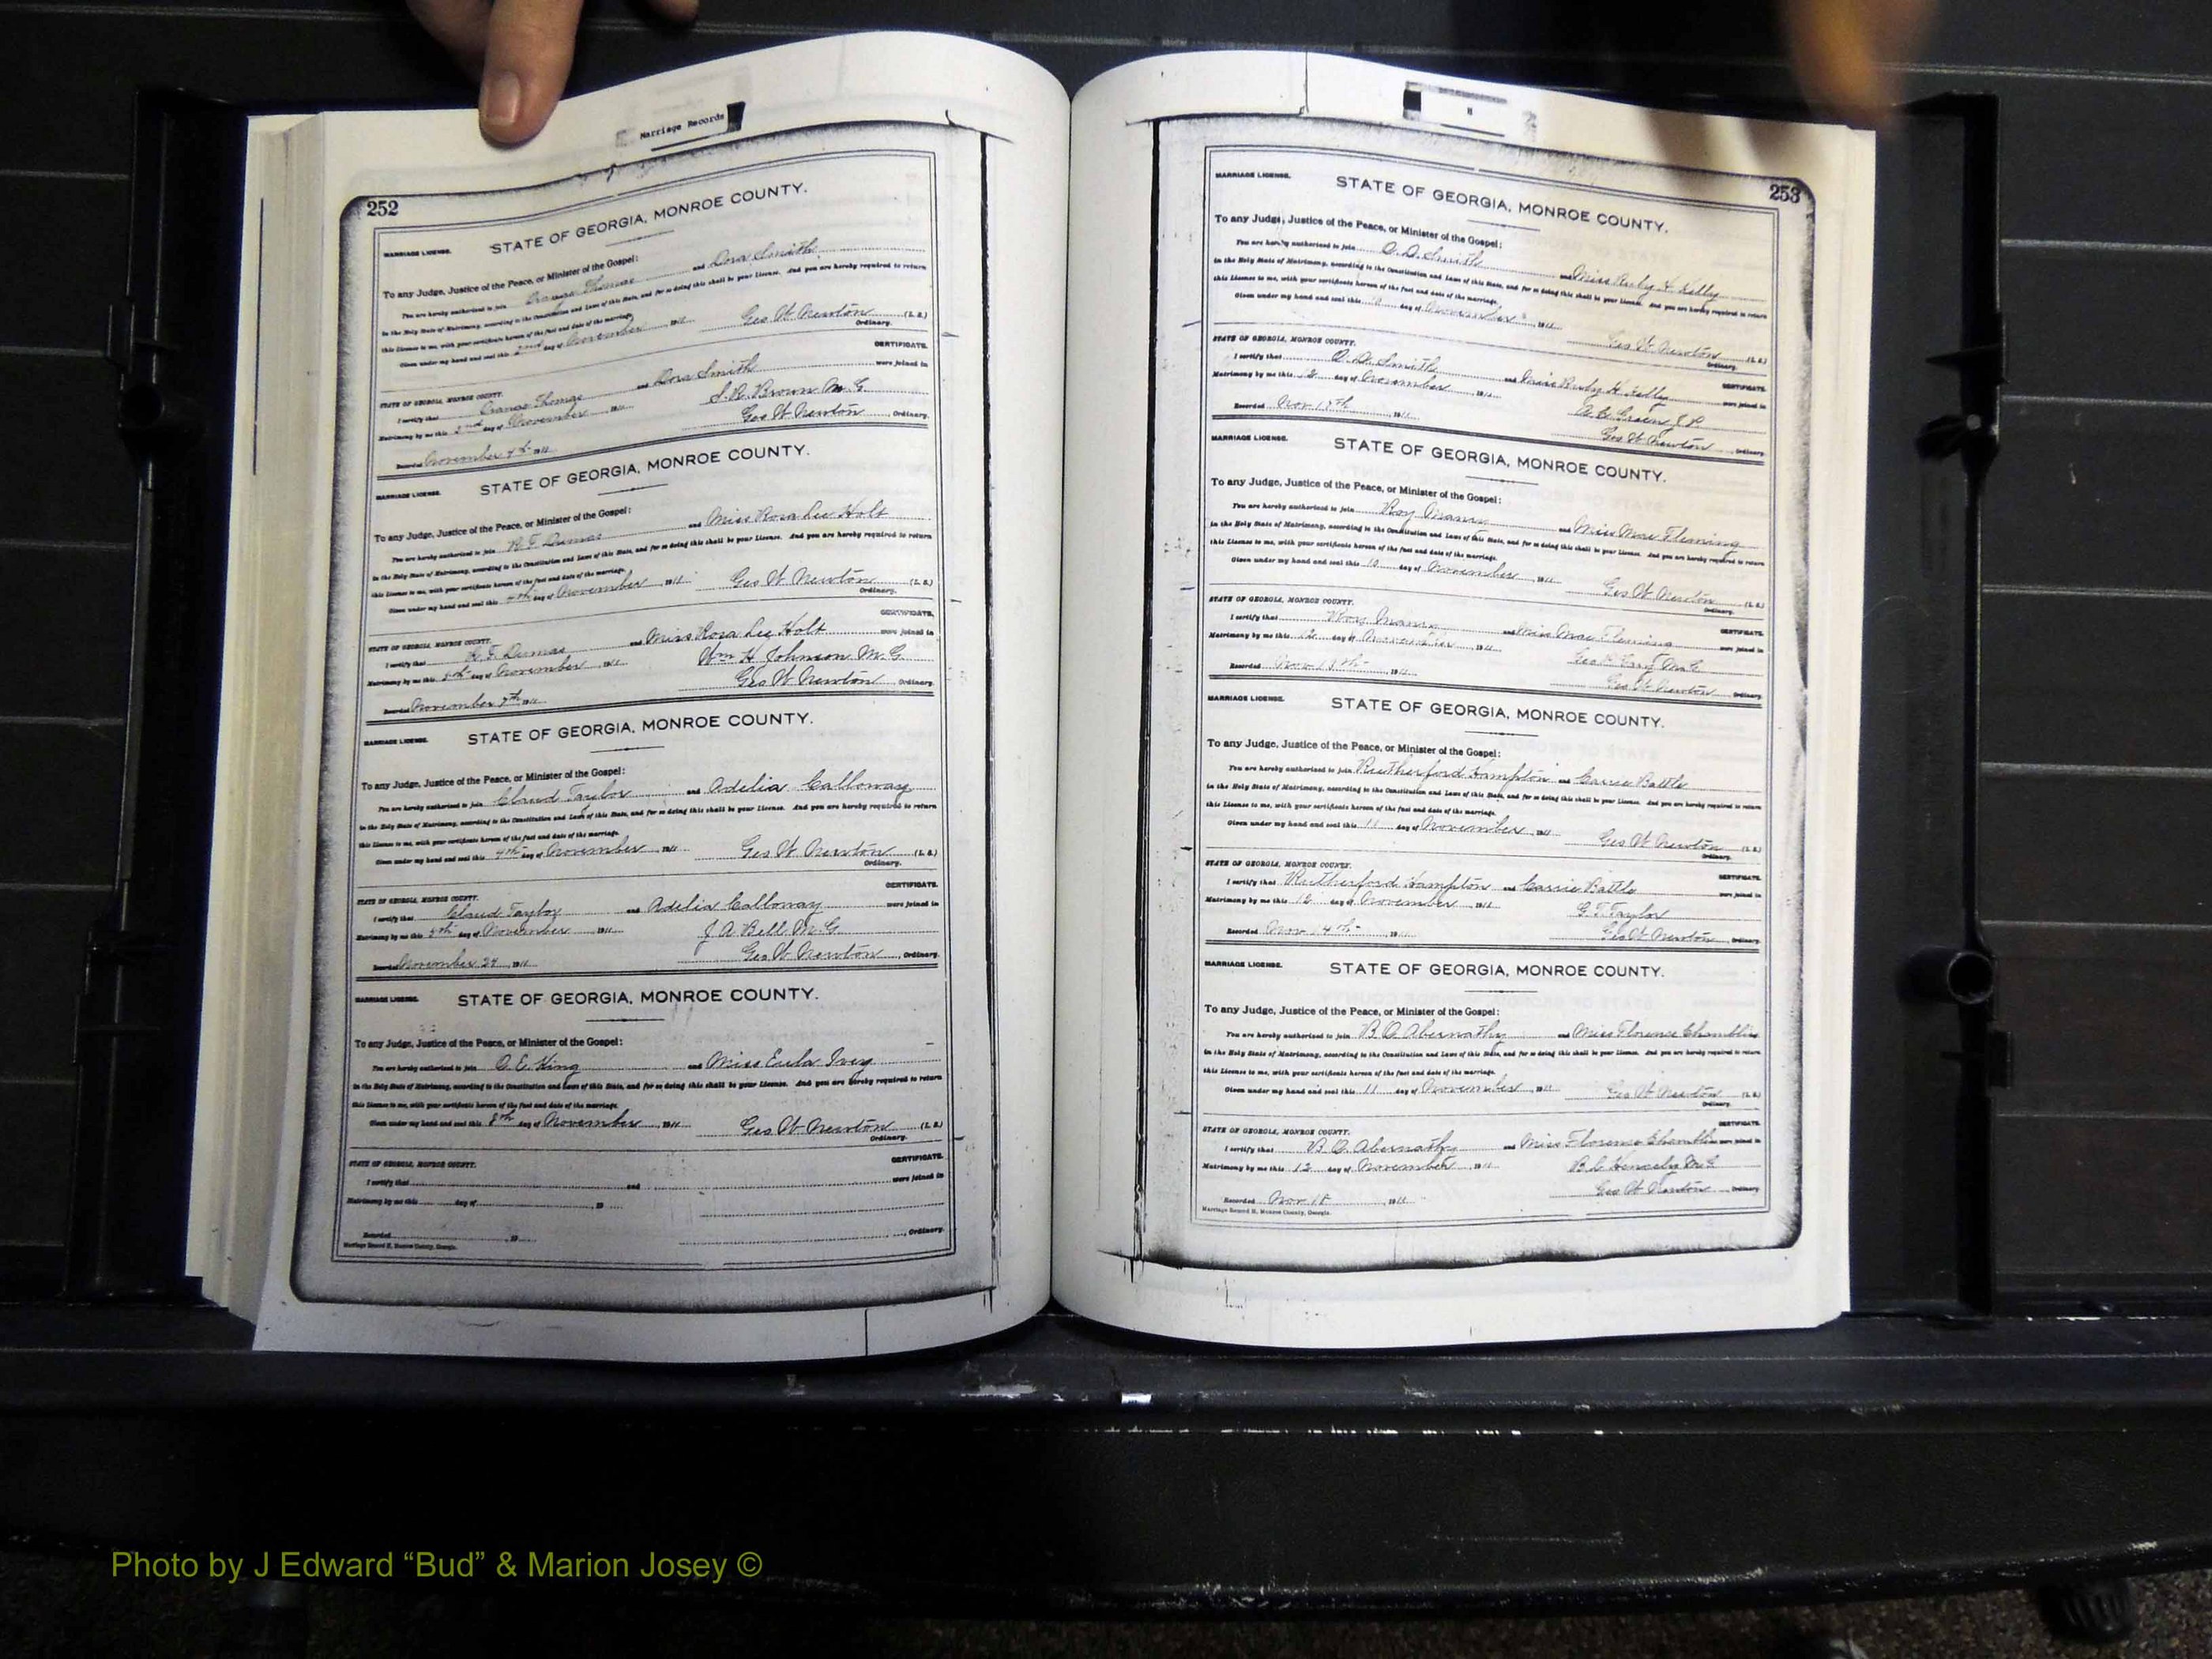 Marriage Records
252
MARRIAGE LICENSE. STATE OF GEORGIA, MONROE COUNTY.
To any Judge, Justice of the Peace, or Minister of the Gospel:
You are hereby authorized to join Orange Thomas and Dora Smith
in the Holy State of Matrimony, according to the Constitution and Laws of this State, and for so doing this shall be your License. And you are hereby required to return
this License to me, with your certificate hereon of the fact and date of the marriage.
Given under my hand and seal this 2nd day of November, 1911 Geo W. Newton (L. S.)
Ordinary.
CERTIFICATE.
STATE OF GEORGIA, MONROE COUNTY.
I certify that Orange Thomas and Dora Smith were joined in
Matrimony by me this 2nd day of November 1911 S. R. Brown M. G.
Geo W. Newton Ordinary.
Recorded November 4th 1911
MARRIAGE LICENSE. STATE OF GEORGIA, MONROE COUNTY.
To any Judge, Justice of the Peace, or Minister of the Gospel:
You are hereby authorized to join H. F. Dumas and Miss Rosa Lee Holt
in the Holy State of Matrimony, according to the Constitution and Laws of this State, and for so doing this shall be your License. And you are hereby required to return
this License to me, with your certificate hereon of the fact and date of the marriage.
Given under my hand and seal this 4th day of November, 1911 Geo W. Newton (L. S.)
Ordinary.
CERTIFICATE.
STATE OF GEORGIA, MONROE COUNTY.
I certify that H. F. Dumas and Miss Rosa Lee Holt were joined in
Matrimony by me this 5th day of November, 1911 Wm H Johnson M. G.
Geo W Newton, Ordinary.
Recorded November 7th, 1911
MARRIAGE LICENSE. STATE OF GEORGIA, MONROE COUNTY.
To any Judge, Justice of the Peace, or Minister of the Gospel:
You are hereby authorized to join Claud Taylor and Adelia Calloway
in the Holy State of Matrimony, according to the Constitution and Laws of this State, and for so doing this shall be your License. And you are hereby required to return
this License to me, with your certificate hereon of the fact and date of the marriage.
Given under my hand and seal this 4th day of November, 1911 Geo W. Newton (L. S.)
Ordinary.
CERTIFICATE.
STATE OF GEORGIA, MONROE COUNTY.
I certify that Claud Taylor and Adelia Calloway were joined in
Matrimony by me this 5th day of November, 1911 J A Bell M. G.
Geo W. Newton, Ordinary.
Recorded November 24, 1911
MARRIAGE LICENSE. STATE OF GEORGIA, MONROE COUNTY.
To any Judge, Justice of the Peace, or Minister of the Gospel:
You are hereby authorized to join O. E. King and Miss Eula Ivey
in the Holy State of Matrimony, according to the Constitution and Laws of this State, and for so doing this shall be your License. And you are hereby required to return
this License to me, with your certificate hereon of the fact and date of the marriage.
Given under my hand and seal this 8th day of November, 1911 Geo W. Newton (L. S.)
Ordinary.
CERTIFICATE.
STATE OF GEORGIA, MONROE COUNTY.
I certify that and were joined in
Matrimony by me this day of , 19
, Ordinary.
Recorded , 19
Marriage Record H, Monroe County, Georgia.
H
253
MARRIAGE LICENSE. STATE OF GEORGIA, MONROE COUNTY.
To any Judge, Justice of the Peace, or Minister of the Gospel:
You are hereby authorized to join O. D. Smith and Miss Ruby H. Kelly
in the Holy State of Matrimony, according to the Constitution and Laws of this State, and for so doing this shall be your License. And you are hereby required to return
this License to me, with your certificate hereon of the fact and date of the marriage.
Given under my hand and seal this day of November, 1911
Geo W. Newton (L. S.)
Ordinary.
STATE OF GEORGIA, MONROE COUNTY. CERTIFICATE.
I certify that O. D. Smith and Miss Ruby H. Kelly were joined in
Matrimony by me this 12 day of November, 1911
Recorded Nov 17th, 1911
Geo W. Newton Ordinary.
MARRIAGE LICENSE. STATE OF GEORGIA, MONROE COUNTY.
To any Judge, Justice of the Peace, or Minister of the Gospel:
You are hereby authorized to join Roy Mann and Miss Mae Fleming
in the Holy State of Matrimony, according to the Constitution and Laws of this State, and for so doing this shall be your License. And you are hereby required to return
this License to me, with your certificate hereon of the fact and date of the marriage.
Given under my hand and seal this 10 day of November, 1911
Geo W. Newton (L. S.)
Ordinary.
STATE OF GEORGIA, MONROE COUNTY. CERTIFICATE.
I certify that Roy Mann and Miss Mae Fleming were joined in
Matrimony by me this 12 day of November, 1911
Recorded Nov, 1911
Geo W. Newton Ordinary.
MARRIAGE LICENSE. STATE OF GEORGIA, MONROE COUNTY.
To any Judge, Justice of the Peace, or Minister of the Gospel:
You are hereby authorized to join Rutherford Hampton and Carrie Battle
in the Holy State of Matrimony, according to the Constitution and Laws of this State, and for so doing this shall be your License. And you are hereby required to return
this License to me, with your certificate hereon of the fact and date of the marriage.
Given under my hand and seal this 11 day of November, 1911
Geo W. Newton (L. S.)
Ordinary.
STATE OF GEORGIA, MONROE COUNTY. CERTIFICATE.
I certify that Rutherford Hampton and Carrie Battle were joined in
Matrimony by me this 12 day of November, 1911 G. T. Taylor
Recorded Nov 14th, 1911 Geo W. Newton, Ordinary.
MARRIAGE LICENSE. STATE OF GEORGIA, MONROE COUNTY.
To any Judge, Justice of the Peace, or Minister of the Gospel:
You are hereby authorized to join B. O. Abernathy and Miss Florence Chambliss
in the Holy State of Matrimony, according to the Constitution and Laws of this State, and for so doing this shall be your License. And you are hereby required to return
this License to me, with your certificate hereon of the fact and date of the marriage.
Given under my hand and seal this 11 day of November, 1911 Geo W. Newton (L. S.)
Ordinary.
STATE OF GEORGIA, MONROE COUNTY. CERTIFICATE.
I certify that B. O. Abernathy and Miss Florence Chambliss were joined in
Matrimony by me this 12 day of November, 1911
Geo W. Newton Ordinary.
Recorded Nov 18, 1911
Marriage Record H, Monroe County, Georgia.
Photo by J Edward “Bud” & Marion Josey ©